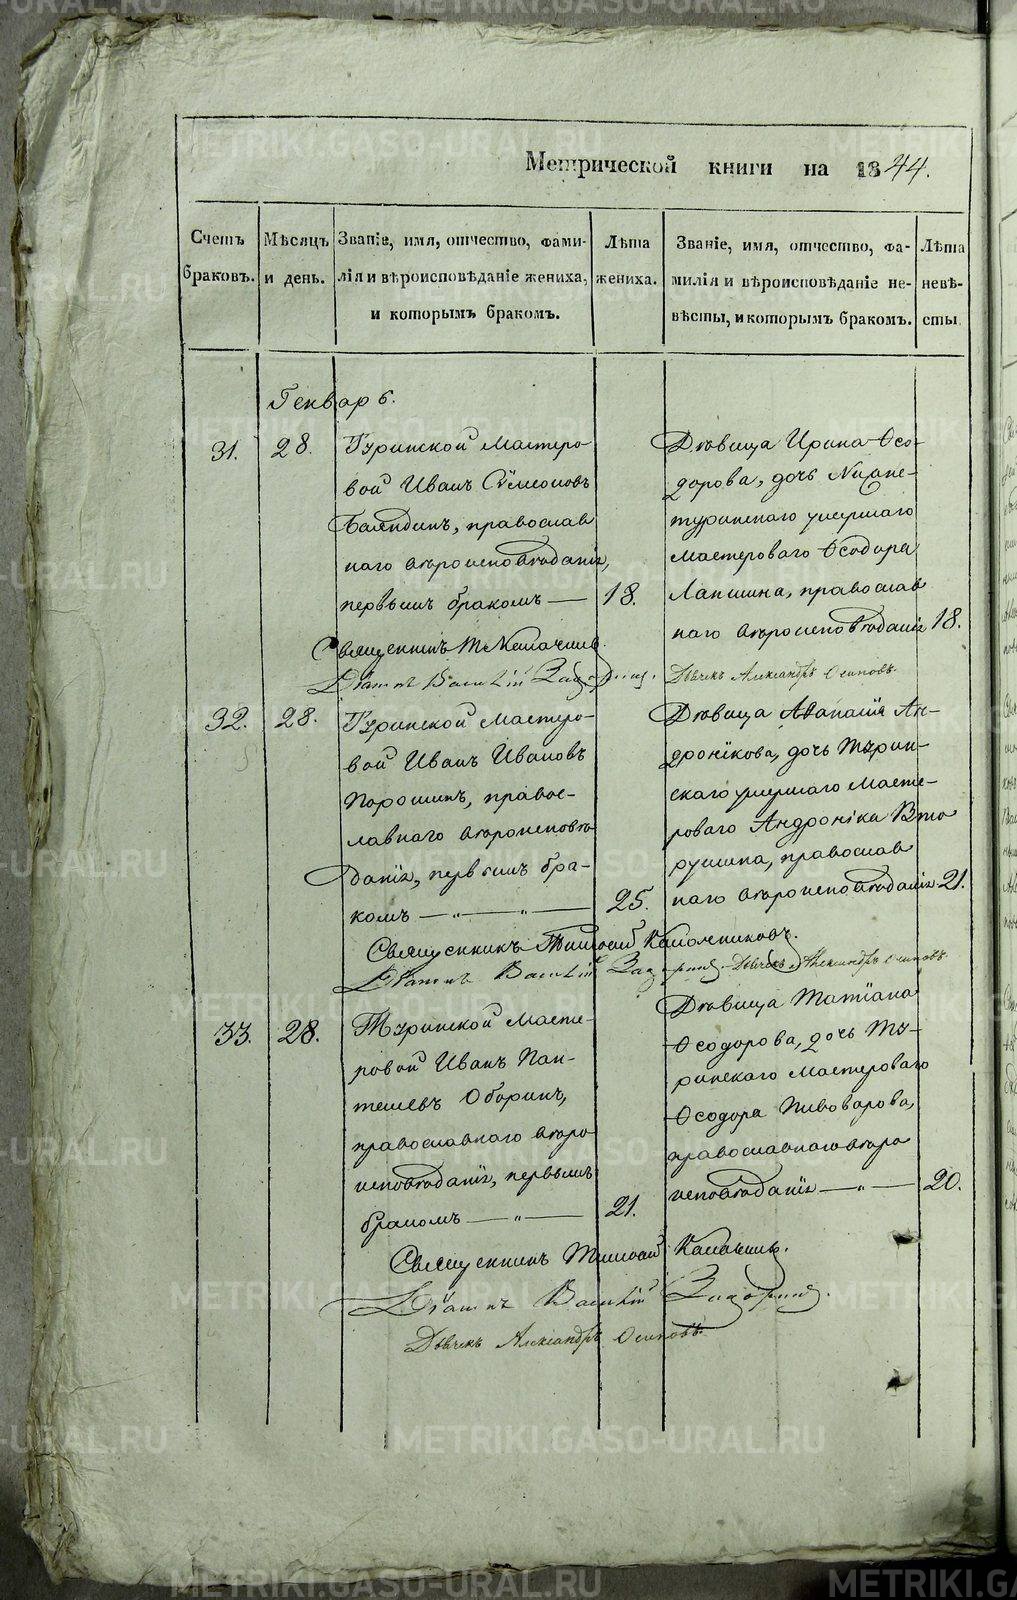 Метрической книги на 1844.
Счетъ браковъ.
Мѣсяцъ и день.
Званіе, имя, отчество, фами-
лія и вѣроисповѣданіе жениха,
и которымъ бракомъ.
Лѣта жениха.
Званіе, имя, отчество, фа-
милія и вѣроисповѣданіе не-
вѣсты, и которымъ бракомъ.
Лѣта невѣ-
сты
Генварь.
31. 28.
Туринской Мастеро
вой Иванъ Сѵмеоновъ
православ
наго вѣроисповѣданія,
первымъ бракомъ — 18.
Дѣвица Ирина Ѳео-
дорова, дочь Нижне-
туринскаго умершаго
мастероваго Ѳеодора
Лапшина, православ
наго вѣроисповѣданія 18.
Священникъ
Діаконъ Василій
Дьячекъ Александръ Осиповъ.
32. 28.
Туринской Мастеро-
вой Иванъ Ивановъ
Порошинъ, правос-
лавнаго вѣроисповѣ
данія, первымъ бра-
комъ — „ — „ — 25.
Дѣвица Аѳанасія Ан-
дроникова, дочь Турин-
скаго умершаго Масте-
роваго Андроніка Вто
рушина, православ
наго вѣроисповѣданія 21.
Священникъ Тимофей
Діаконъ Василій
Дьячекъ Александръ Осиповъ
33. 28.
Туринской Масте-
ровой Иванъ Пан-
телеевъ Оборинъ,
православнаго вѣро
исповѣданія, первымъ
бракомъ — „ — 21.
Дѣвица Татіана
Ѳеодорова, дочь Ту-
ринскаго Мастероваго
Ѳеодора Пивоварова,
православнаго вѣро
исповѣданія — „ — 20.
Священникъ Тимофей
Діаконъ Василій
Дьячекъ Александръ Осиповъ.
METRIKI.GASO-URAL.RU